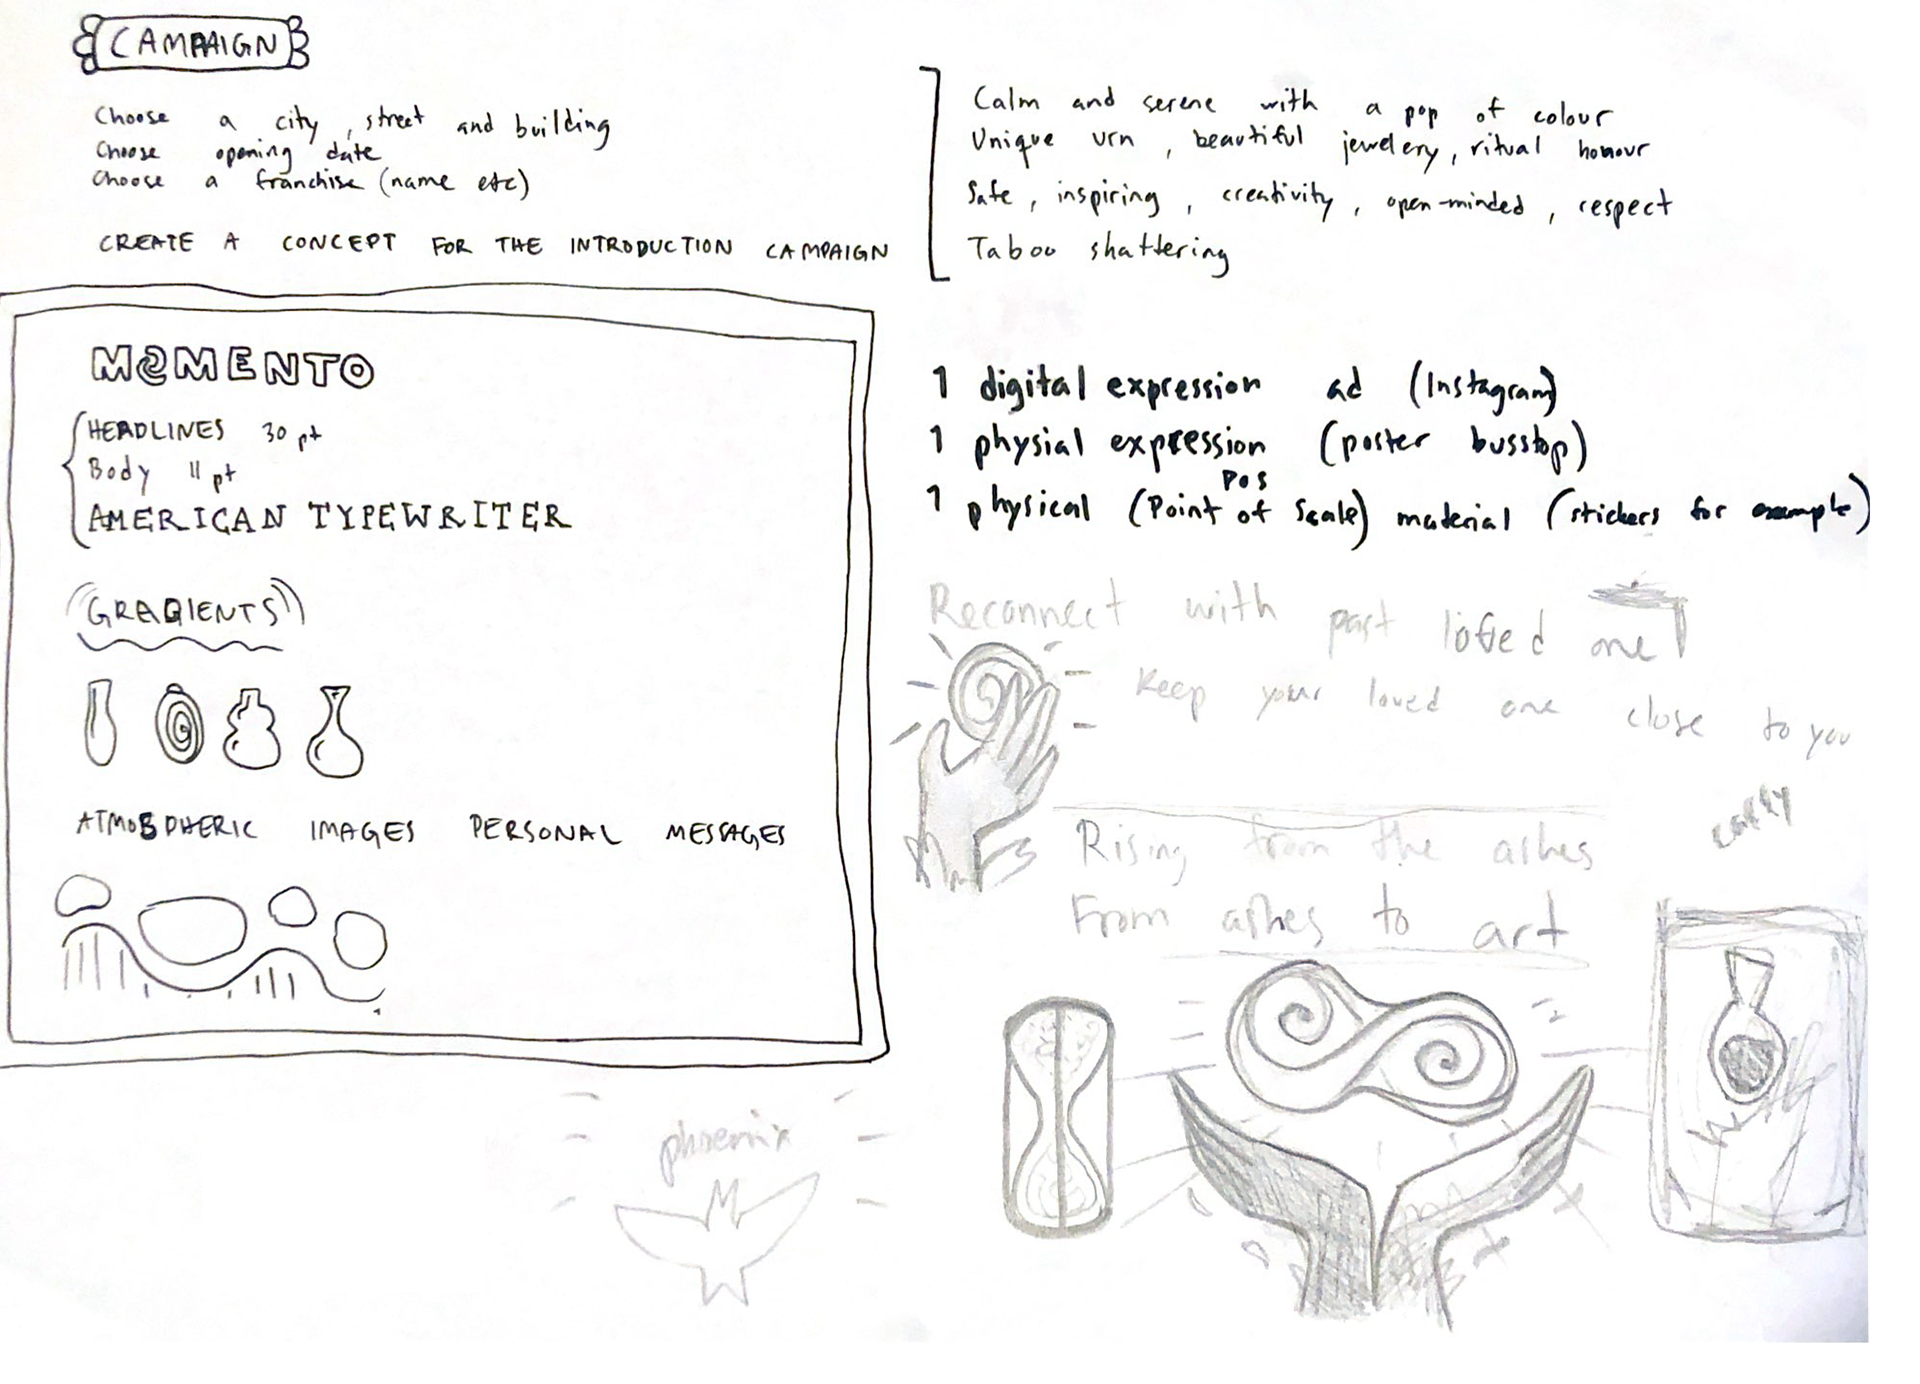 CAMPAIGN
Choose a city, street and building
Choose opening date
Choose a franchise (name etc)
CREATE A CONCEPT FOR THE INTRODUCTION CAMPAIGN
Calm and serene with a pop of colour
Unique urn, beautiful jewelery, ritual honour
Safe, inspiring, creativity, open-minded, respect
Taboo shattering
MOMENTO
HEADLINES 30 pt
Body 11 pt
AMERICAN TYPEWRITER
GRADIENTS
ATMOSPHERIC IMAGES PERSONAL MESSAGES
1 digital expression ad (Instagram)
1 physial expression (poster busstop)
POS
1 physical (Point of Scale) material (stickers for example)
Reconnect with past loved one
Keep your loved one close to you
carry
Rising from the ashes
From ashes to art
phoenix